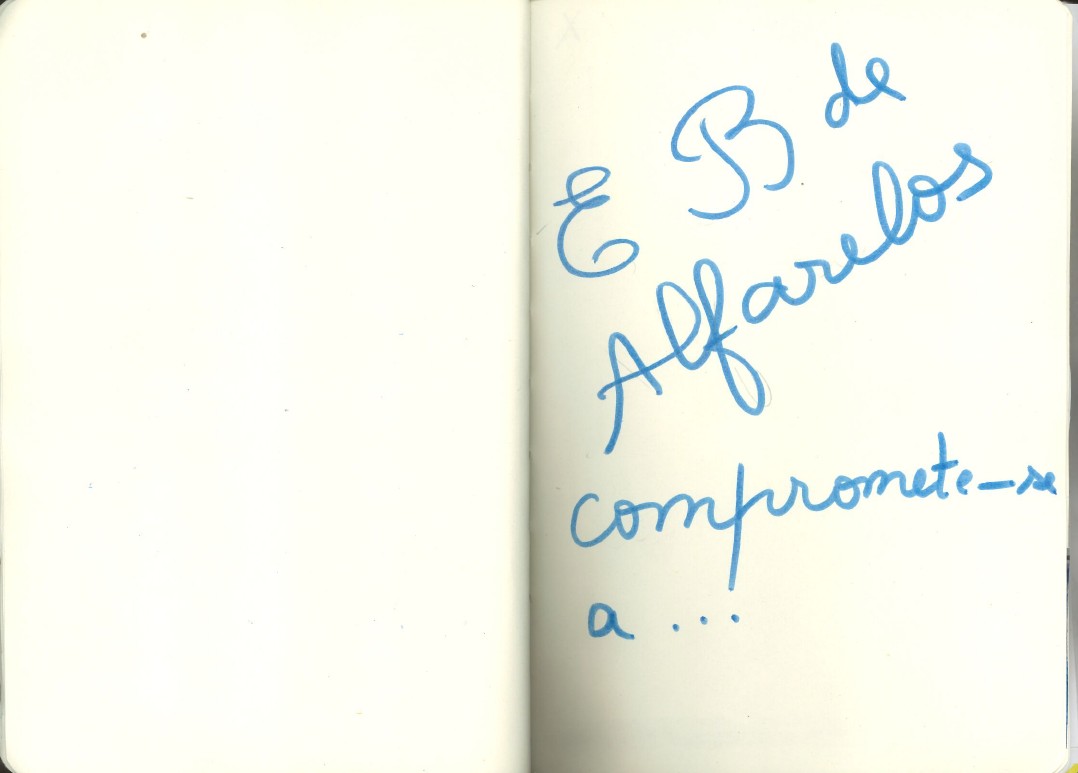 E B de
Alfarelos
compromete-se
a ...